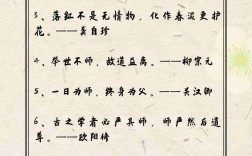 3、落红不是无情物，化作春泥更护
花。——龚自珍
4、举世不师，故道益离。——柳宗元
5、一日为师，终身为父。——关汉卿
6、古之学者必严其师，师严然后道
尊。——欧阳修